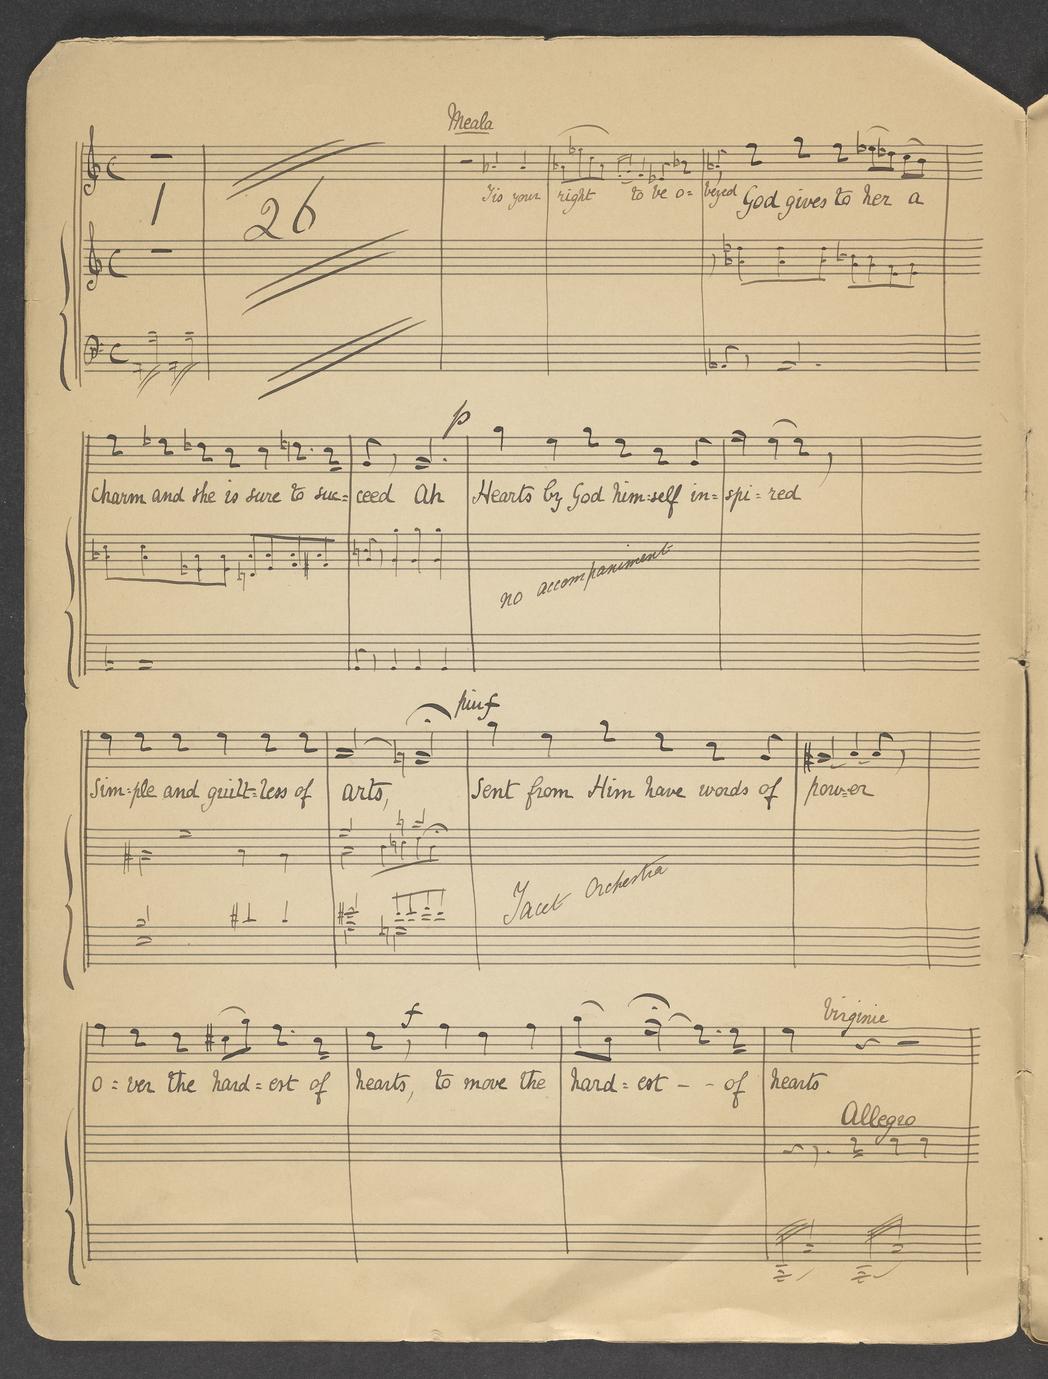 Meala
1
26
'Tis your right to be o= beyed God gives to her a
p
charm and she is sure to suc= ceed Ah Hearts by God him=self in= spi= red
no accompaniment
piuf
Sim=ple and guilt=less of arts, Sent from Him have words of pow=er
Tacet Orchestra
Virginie
f
o= ver the hard= est of hearts, to move the hard= est - - of hearts
Allegro